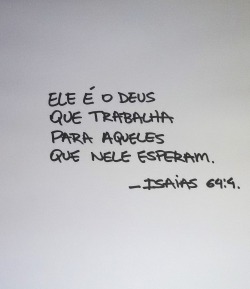 ELE É O DEUS
QUE TRABALHA
PARA AQUELES
QUE NELE ESPERAM.
—ISAÍAS 64:4.